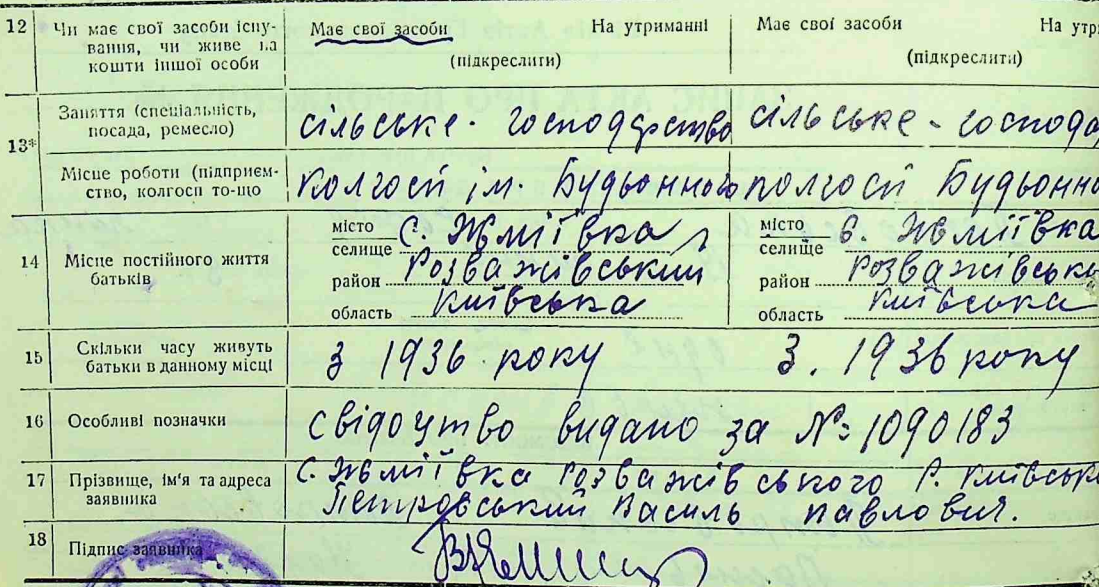 12 Чи має свої засоби існу-
вання, чи живе на
кошти іншої особи
Має свої засоби На утриманні
(підкреслити)
Має свої засоби На утр
(підкреслити)
13*
Заняття (спеціальність,
посада, ремесло)
сільське - господарство
сільське - господа
Місце роботи (підприєм-
ство, колгосп то-що
колгосп ім. Будьонного
колгосп Будьонно
14 Місце постійного життя
батьків
місто
селище С. Жміївка
район Розважівський
область Київська
місто
селище С. Жміївка
район Розважівськи
область Київська
15 Скільки часу живуть
батьки в данному місці
З 1936 року
З. 1936 року
16 Особливі позначки
свідоцтво видано за №: 1090183
17 Прізвище, ім'я та адреса
заявника
С. Жміївка Розважівського Р. Київсько
Петровський Василь Павлович.
18 Підпис заявника